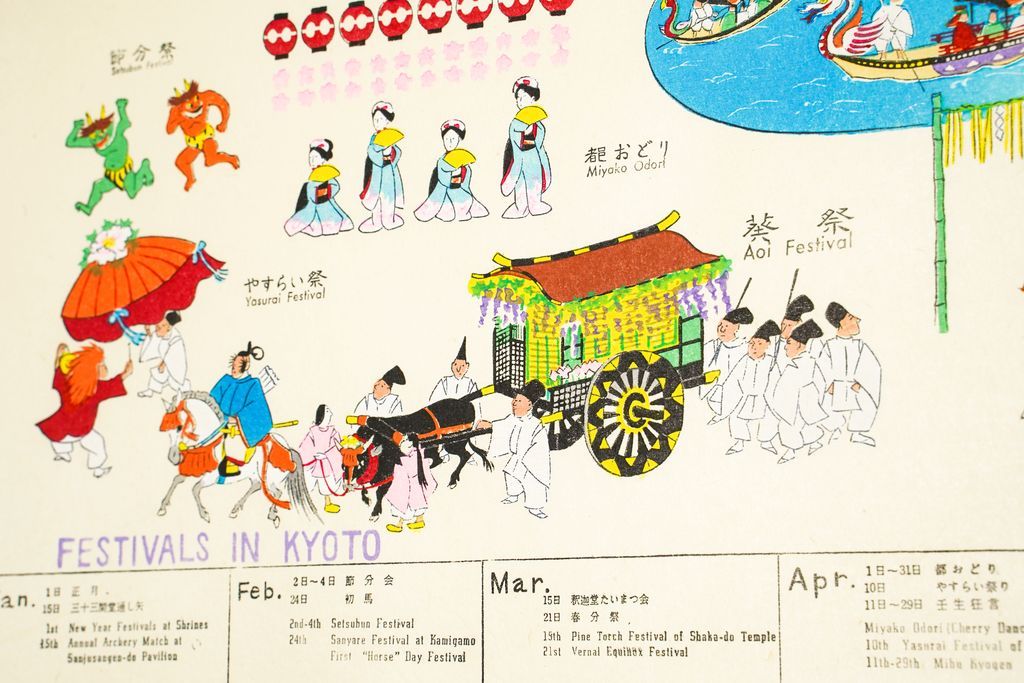 節分祭
Setsubun Festival
都おどり
Miyako Odori
葵祭
Aoi Festival
やすらい祭
Yasurai Festival
FESTIVALS IN KYOTO
an.
1日 正月
15日 三十三間堂通し矢
1st New Year Festivals at Shrines
15th Annual Archery Match at
Sanjusangen-do Pavilion
Feb.
2日～4日 節分会
24日 初馬
2nd-4th Setsubun Festival
24th Sanyare Festival at Kamigamo
First "Horse" Day Festival
Mar.
15日 釈迦堂たいまつ会
21日 春分祭
15th Pine Torch Festival of Shaka-do Temple
21st Vernal Equinox Festival
Apr.
1日～31日 都おどり
10日 やすらい祭り
11日～29日 壬生狂言
Miyako Odori (Cherry Danc
10th Yasurai Festival of
11th-29th Mibu Kyogen